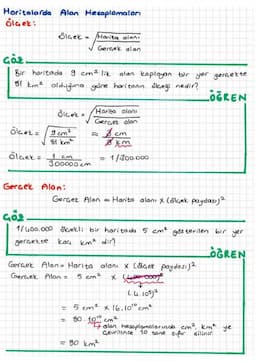 Haritalarda Alan Hesaplamaları
Ölçek:
Ölçek = √ Harita alanı / Gerçek alan
ÇÖZ
Bir haritada 9 cm² lik alan kaplayan bir yer gerçekte
81 km² olduğuna göre haritanın ölçeği nedir?
ÖĞREN
Ölçek = √ Harita alanı / Gerçek alan
Ölçek = √ 9 cm² / 81 km² = 3 cm / 9 km
Ölçek = 1 cm / 300000 cm = 1/300.000
Gerçek Alan:
Gerçek Alan = Harita alanı x (ölçek paydası)²
ÇÖZ
1/400.000 ölçekli bir haritada 5 cm² gösterilen bir yer
gerçekte kaç km² dir?
ÖĞREN
Gerçek Alan = Harita alanı x (ölçek paydası)²
Gerçek Alan = 5 cm² x (400.000)²
(4.10⁵)²
= 5 cm² x 16.10¹⁰ cm²
= 80.10¹⁰ cm²
→ alan hesaplamalarında cm², km² ye
çevrilince 10 tane sıfır silinir.
= 80 km²